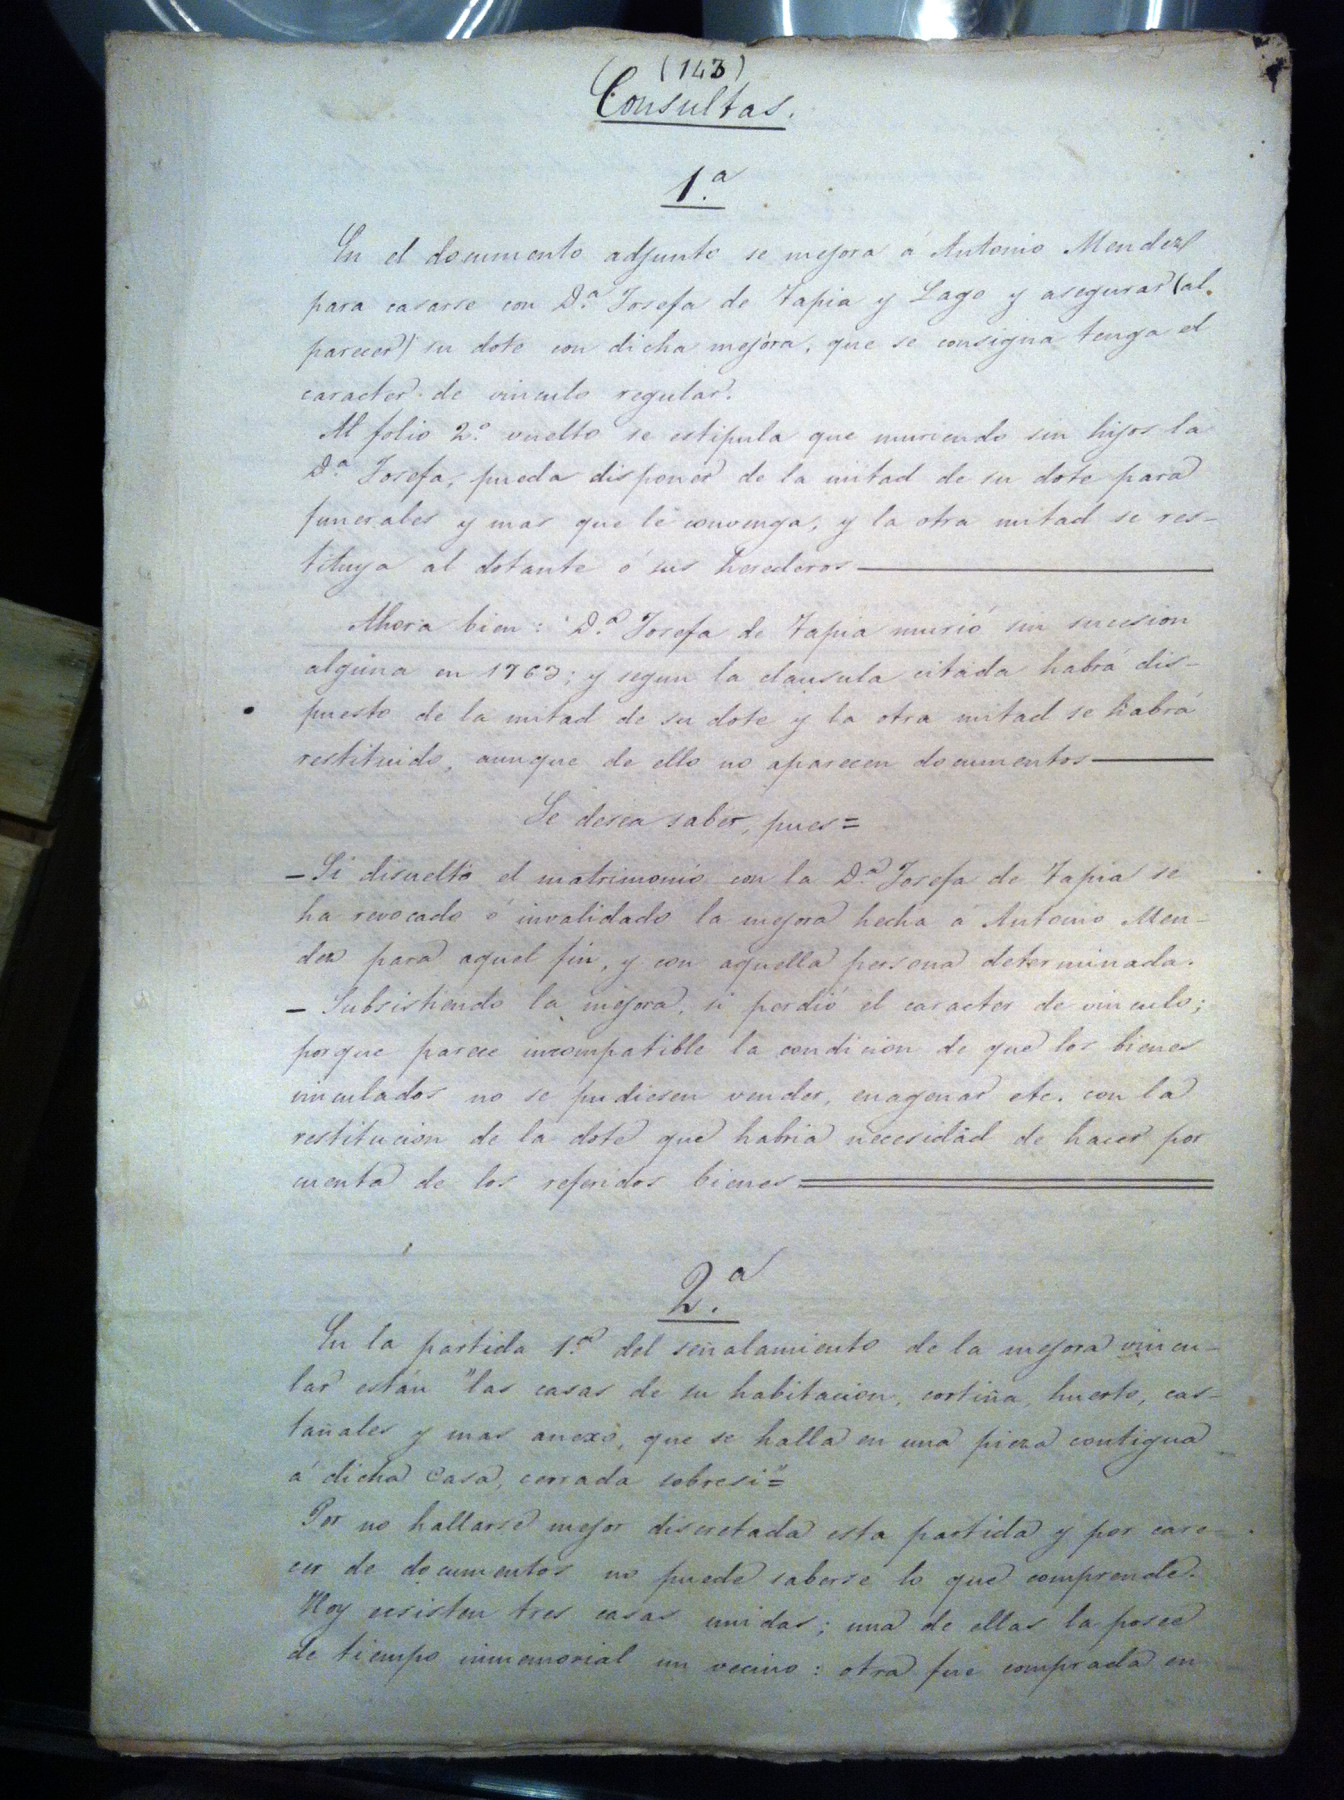 (143)
Consultas.
1.ª
En el documento adjunto se mejora á Antonio Mendez
para casarse con D.ª Josefa de Tapia y Lago y asegurar (al
parecer) su dote con dicha mejora, que se consigna tenga el
caracter de vinculo regular.
Al folio 2.º vuelto se estipula que muriendo sin hijos la
D.ª Josefa, pueda disponer de la mitad de su dote para
funerales y mas que le convenga, y la otra mitad se res-
tituya al dotante ó sus herederos
Ahora bien: D.ª Josefa de Tapia murió sin sucesion
alguna en 1763; y segun la clausula citada habrá dis-
puesto de la mitad de su dote y la otra mitad se habrá
restituido, aunque de ello no aparecen documentos
Se desea saber, pues=
- Si disuelto el matrimonio con la D.ª Josefa de Tapia se
ha revocado ó invalidado la mejora hecha á Antonio Men-
dez para aquel fin, y con aquella persona determinada.
- Subsistiendo la mejora, si perdió el caracter de vinculo;
porque parece incompatible la condicion de que los bienes
vinculados no se pudiesen vender, enagenar etc. con la
restitucion de la dote que habria necesidad de hacer por
cuenta de los referidos bienes.
2.ª
En la partida 1.ª del señalamiento de la mejora vincu-
lar están "las casas de su habitacion, cortiña, huerto, cas-
tañales y mas anexo, que se halla en una pieza contigua
á dicha Casa, cerrada sobresi"=
Por no hallarse mejor discretada esta partida y por care-
cer de documentos no puede saberse lo que comprende.
Hoy ecsisten tres casas unidas; una de ellas la posee
de tiempo inmemorial un vecino: otra fue comprada en